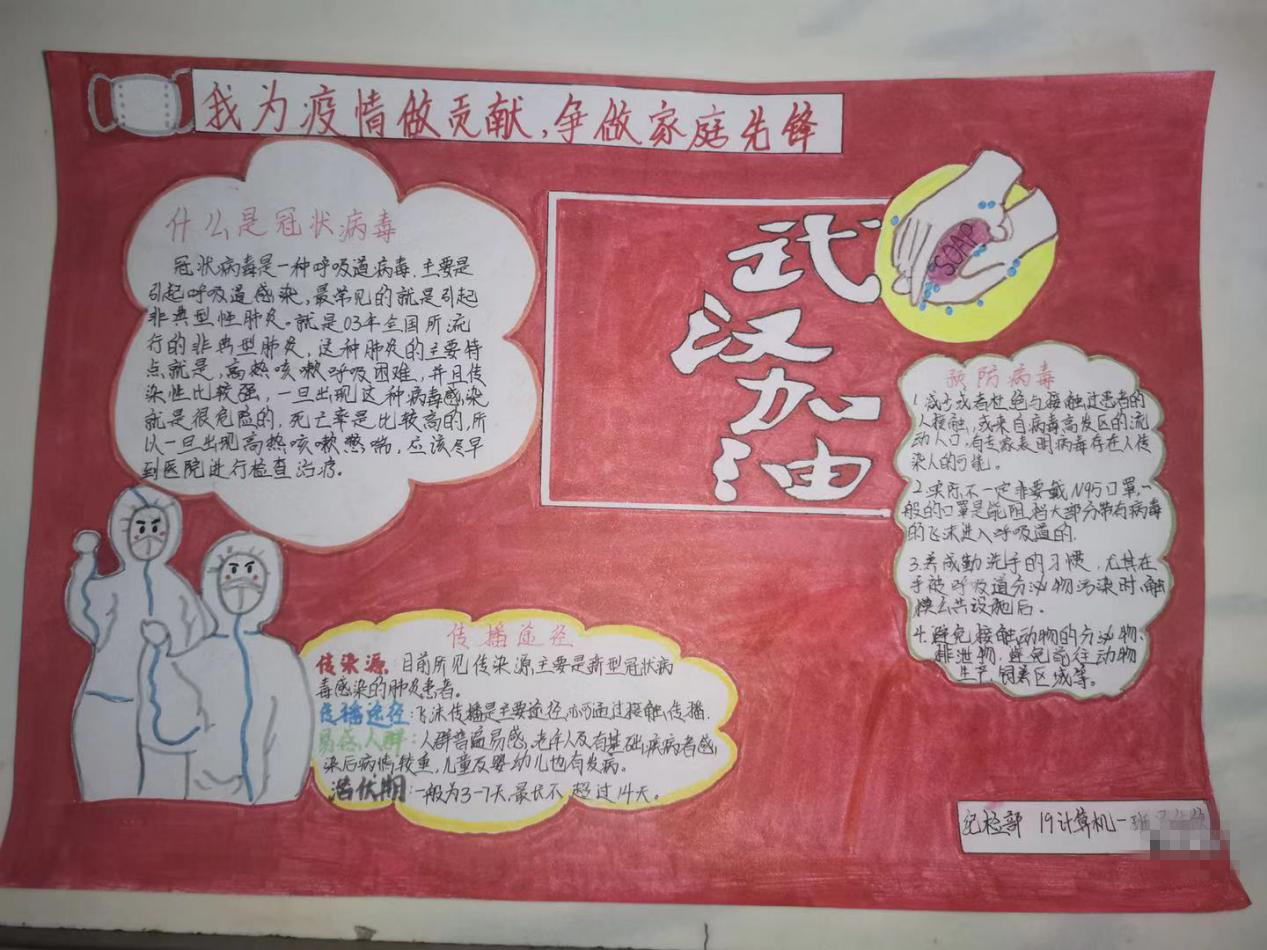 我为疫情做贡献,争做家庭先锋
什么是冠状病毒
冠状病毒是一种呼吸道病毒.主要是
引起呼吸道感染,最常见的就是引起
非典型性肺炎。就是03年全国所流
行的非典型肺炎,这种肺炎的主要特
点就是,高热咳嗽呼吸困难,并且传
染性比较强,一旦出现这种病毒感染
就是很危险的,死亡率是比较高的,所
以一旦出现高热咳嗽憋喘,应该尽早
到医院进行检查治疗.
武
汉
加
油
SOAP
预防病毒
1.减少或者杜绝与接触过患者的
人接触,或来自病毒高发区的流
动人口,有专家表明病毒存在人传
染人的可能。
2.实际不一定非要戴N95口罩,一
般的口罩是能阻挡大部分带有病毒
的飞沫进入呼吸道的.
3.养成勤洗手的习惯,尤其在
手被呼吸道分泌物污染时,触
摸公共设施后.
4.避免接触动物的分泌物、
排泄物,避免前往动物
生产,饲养区域等。
传播途径
传染源:目前所见传染源主要是新型冠状病
毒感染的肺炎患者。
传播途径:飞沫传播是主要途径,亦可通过接触传播.
易感人群:人群普遍易感,老年人及有基础疾病者感
染后病情较重,儿童及婴幼儿也有发病。
潜伏期:一般为3-7天,最长不超过14天。
纪检部 19计算机一班